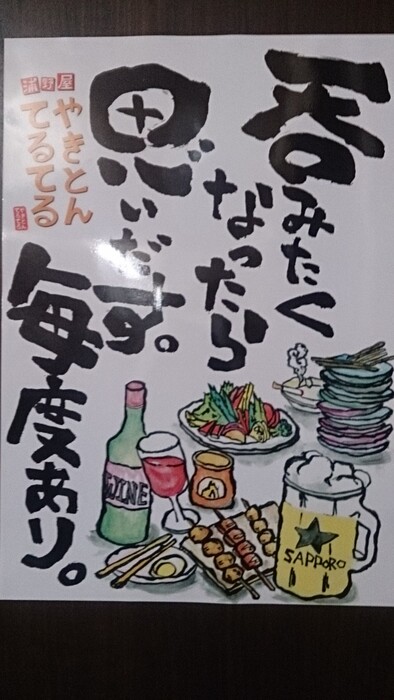 呑みたく
なったら
思いだす。
毎度あり。
蒲野屋
やきとん
てるてる
WINE
SAPPORO